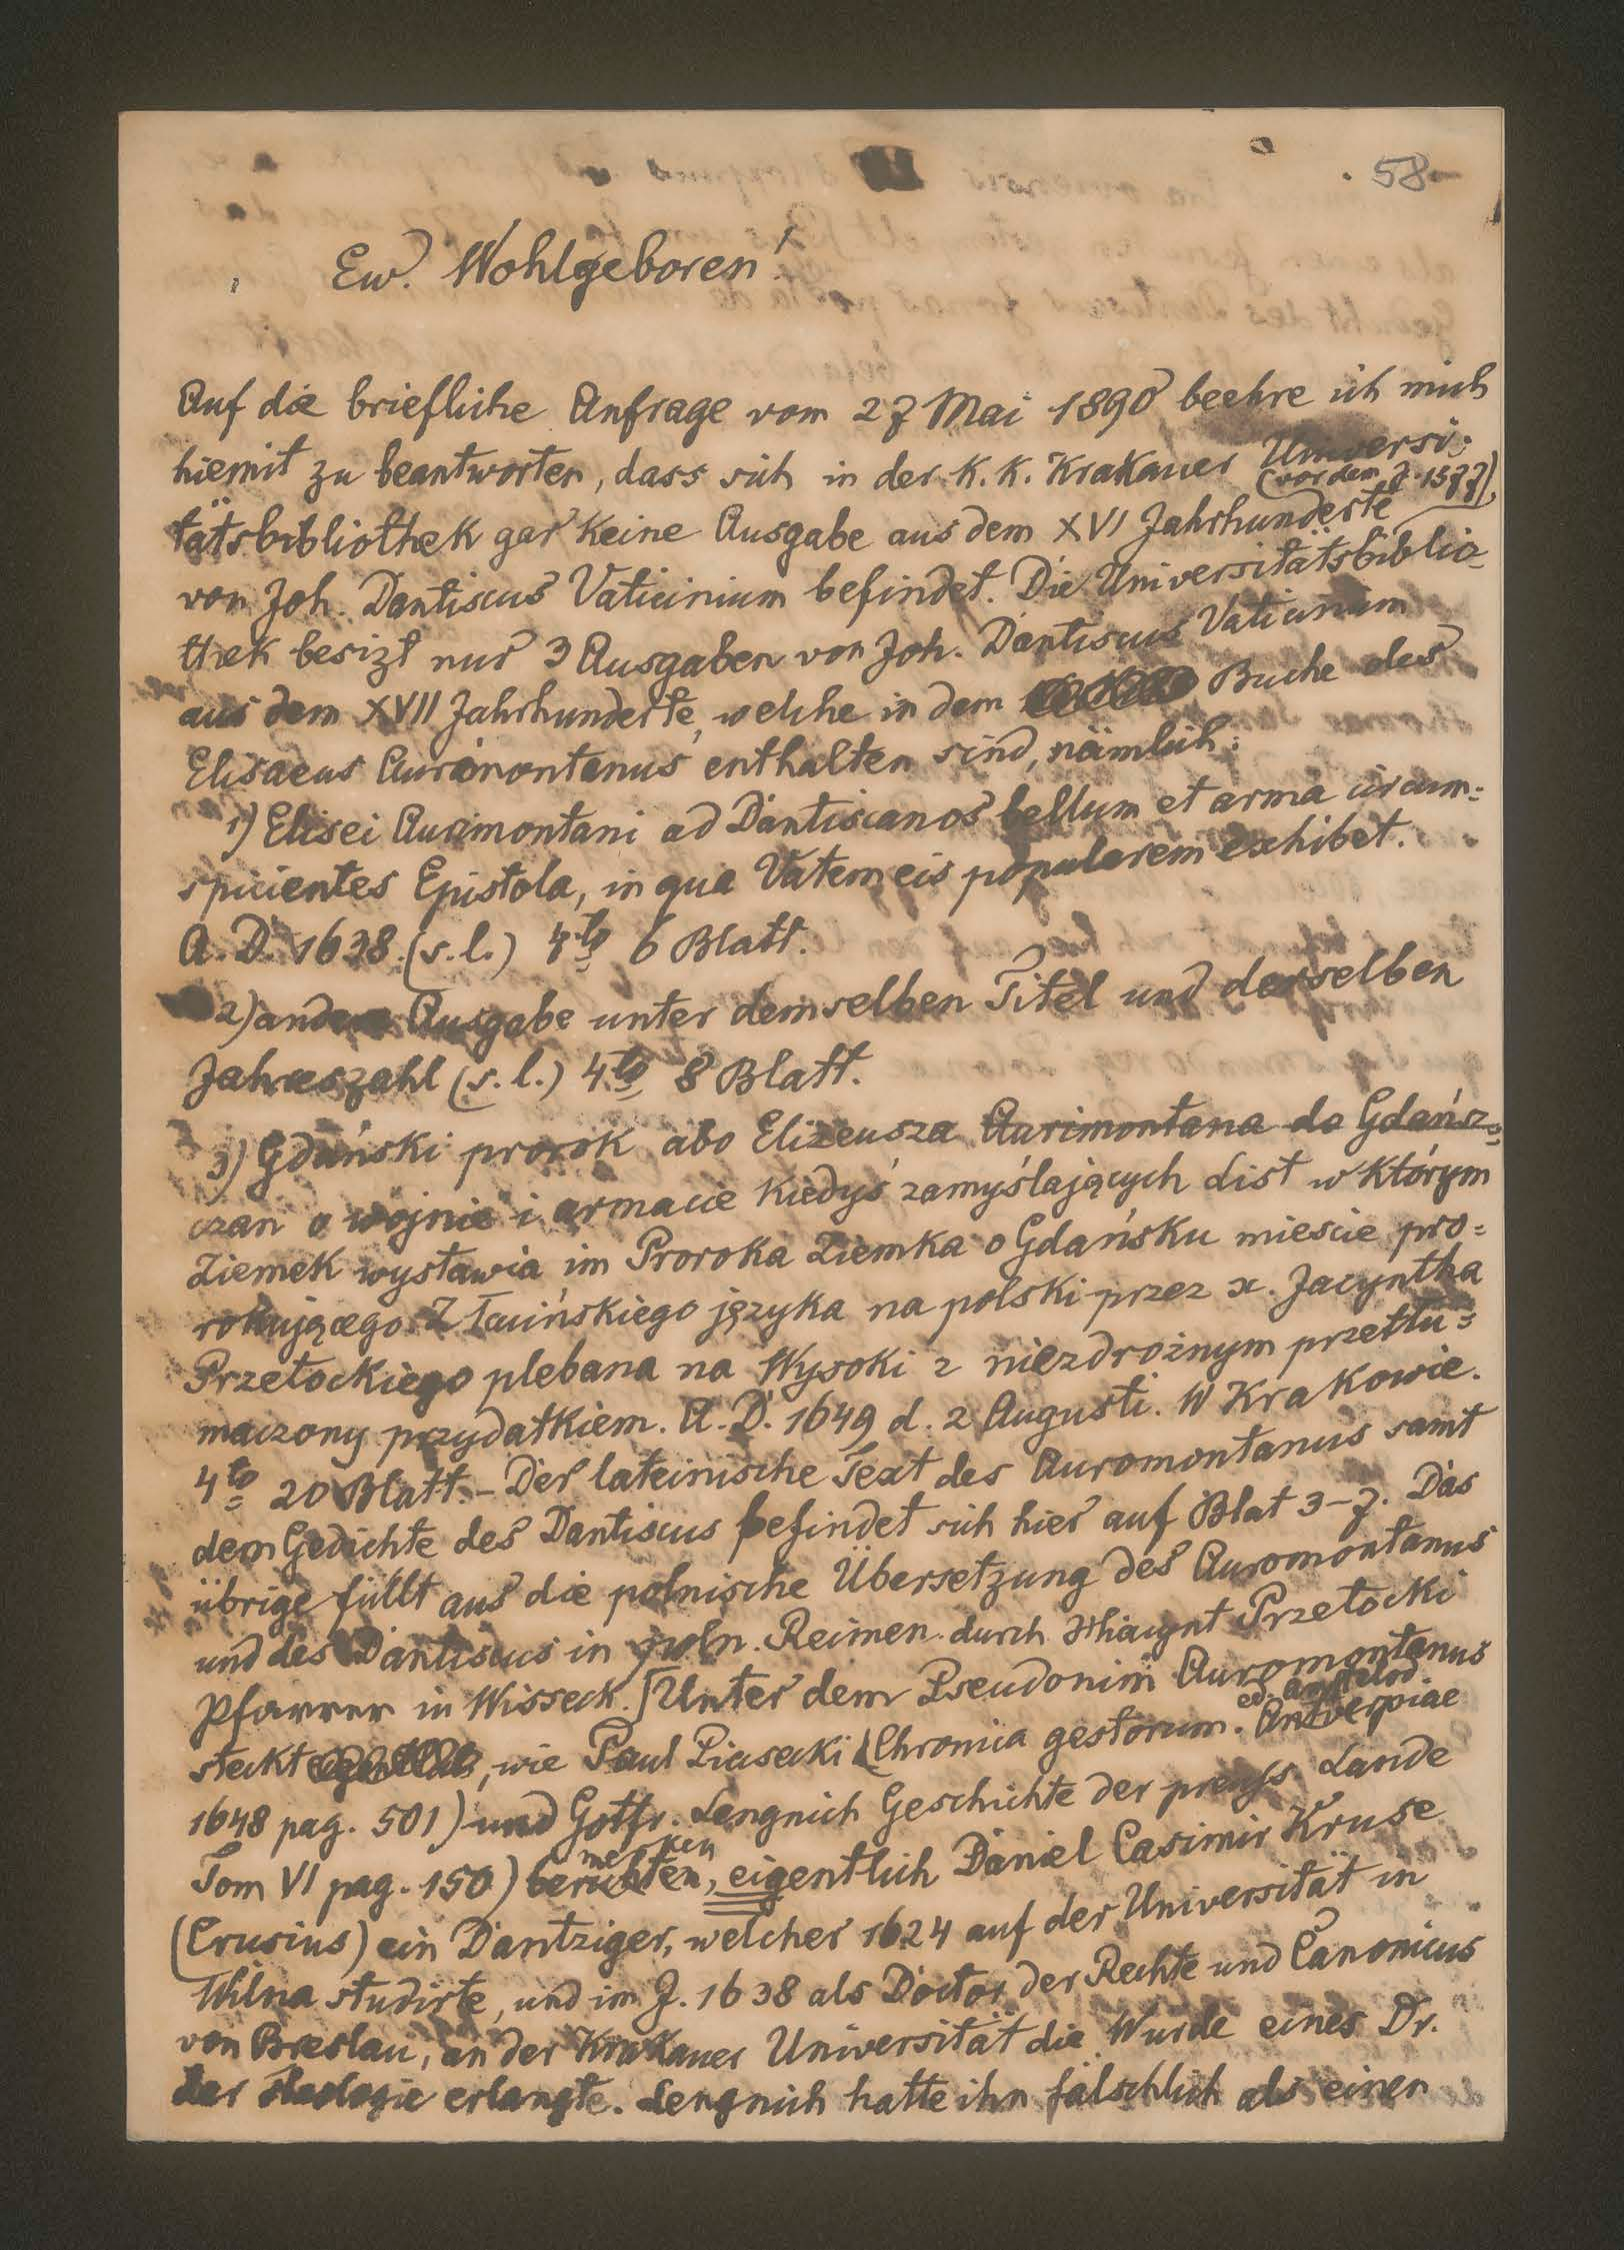 58
Ew. Wohlgeboren!
Auf die briefliche Anfrage vom 27 Mai 1890 beehre ich mich
hiemit zu beantworten, dass sich in der K. K. Krakauer Universi-
(vor dem J. 1577)
tätsbibliothek gar keine Ausgabe aus dem XVI Jahrhunderte
von Joh. Dantiscus Vaticinium befindet. Die Universitätsbiblio-
thek besizt nur 3 Ausgaben von Joh. Dantiscus Vaticinium
aus dem XVII Jahrhunderte, welche in dem Buche des
Elisaeus Aurimontanus enthalten sind, nämlich:
1) Elisei Aurimontani ad Dantiscanos bellum et arma circum=
spicientes Epistola, in qua Vatem eis popularem exhibet.
A. D. 1638. (s. l.) 4to 6 Blatt.
2) andere Ausgabe unter demselben Titel und derselben
Jahreszahl (s. l.) 4to 8 Blatt.
3) Gdański prorok abo Elizeusza Aurimontana do Gdańsz=
czan o wojnie i armacie kiedyś zamyślających list w którym
Ziemek wystawia im Proroka Ziemka o Gdańsku mieście pro=
rokującego. Z Łacińskiego języka na polski przez x. Jacyntha
Przetockiego plebana na Wysoki z niezdrożnym przetłu=
maczony przydatkiem. A. D. 1649 d. 2 Augusti. W Krakowie.
4to 20 Blatt. – Der lateinische Text des Auromontanus samt
dem Gedichte des Dantiscus befindet sich hier auf Blat 3–7. Das
übrige füllt aus die polnische Übersetzung des Auromontanus
und des Dantiscus in poln. Reimen durch Hiacynt Przetocki
Pfarrer in Wisseck. [Unter dem Pseudonim Auromontanus
ed. Amstelod.
steckt, wie Paul Piasecki (Chronica gestorum. Antverpiae
1648 pag. 501) und Gottfr. Lengnich Geschichte der preuss. Lande
merken
Tom VI pag. 150) berichten, eigentlich Daniel Casimir Kruse
(Crusius) ein Dantziger, welcher 1624 auf der Universität in
Wilna studirte, und im J. 1638 als Doctor der Rechte und Canonicus
von Breslau, an der Krakauer Universität die Wurde eines Dr.
der theologie erlangte. Lengnich hatte ihn fälschlich als einen